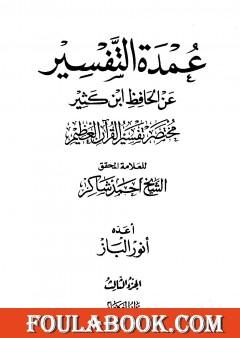 عُمدَة التَّفْسِير
عَن الحَافِظ ابن كَثير
مختصر تفسير القرآن العظيم
للعلامة المحقق
الشيخ أحمد شاكر
أعده
أنور الباز
الجزء الثالث
FOULABOOK.COM